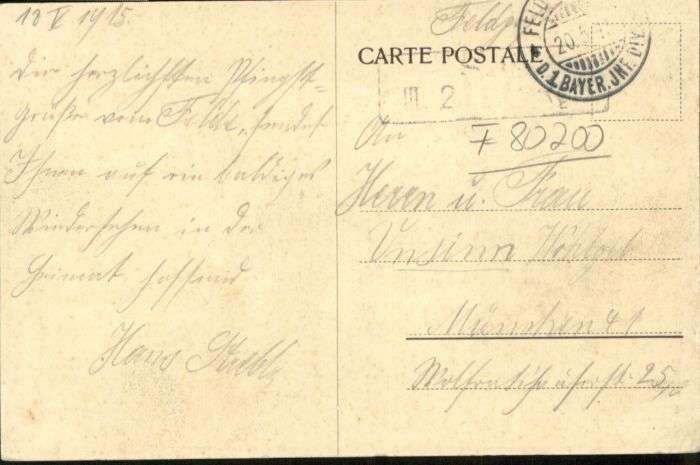 18 V 1915
Die herzlichsten Pfingst-
grüße vom Felde, sendet
Ihnen auf ein baldiges
Wiedersehen in der
Heimat hoffend
Hans
Feldp
CARTE POSTALE
FELD
20.5.
D.1.BAYER.INF.DIV
III 2
An
F 80200
Herrn u. Frau
München 41
Wolfratshauserstr. 25